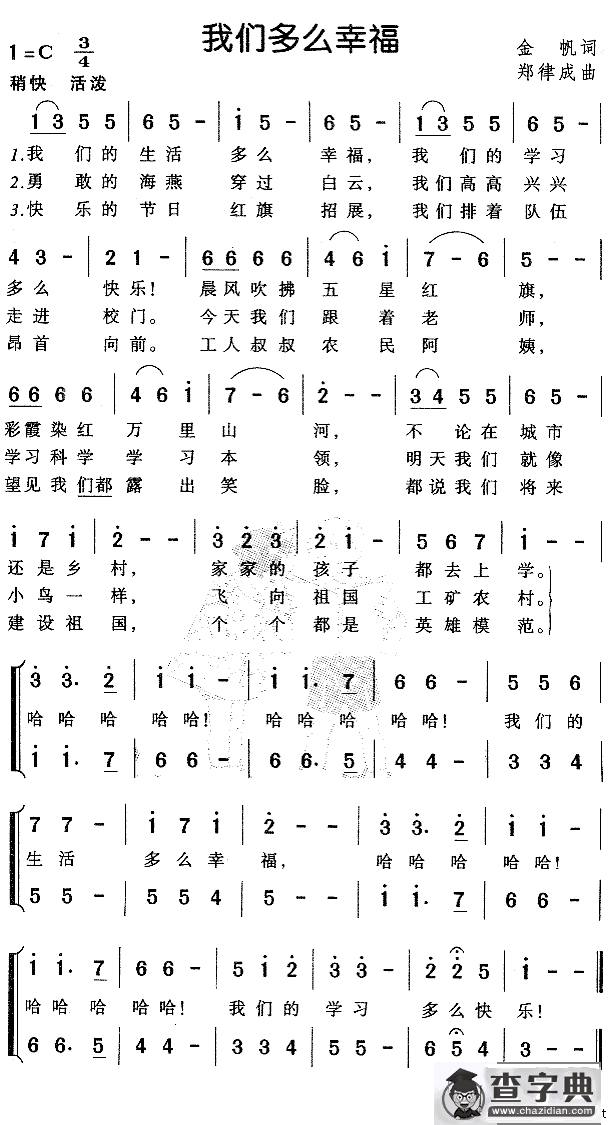 我们多么幸福
1=C 3/4
金 帆词
郑律成曲
稍快 活泼
1 3 5 5 | 6 5 - | i 5 - | 6 5 - | 1 3 5 5 | 6 5 - |
1.我 们的 生活 多么 幸福， 我 们的 学习
2.勇 敢的 海燕 穿过 白云， 我们高高 兴兴
3.快 乐的 节日 红旗 招展， 我们排着 队伍
4 3 - | 2 1 - | 6 6 6 6 | 4 6 i | 7 - 6 | 5 - - |
多么 快乐！ 晨风吹拂 五 星红 旗，
走进 校门。 今天我们 跟着老 师，
昂首 向前。 工人叔叔 农民阿 姨，
6 6 6 6 | 4 6 i | 7 - 6 | 2̇ - - | 3 4 5 5 | 6 5 - |
彩霞染红 万里山 河， 不 论在 城市
学习科学 学习本 领， 明天我们 就像
望见我们都 露出笑 脸， 都说我们 将来
i 7 i | 2̇ - - | 3̇ 2̇ 3̇ | 2̇ i - | 5 6 7 | i - - |
还是乡 村， 家家的 孩子 都去上 学。
小鸟一 样， 飞向祖国 工矿农 村。
建设祖 国， 个个都是 英雄模 范。
3̇ 3̇. 2̇ | i i - | i i. 7 | 6 6 - | 5 5 6 |
哈哈 哈 哈哈！ 哈哈 哈 哈哈！ 我们的
i i. 7 | 6 6 - | 6 6. 5 | 4 4 - | 3 3 4 |
7 7 - | i 7 i | 2̇ - - | 3̇ 3̇. 2̇ | i i - |
生活 多么幸 福， 哈哈 哈 哈哈！
5 5 - | 5 5 4 | 5 - - | i i. 7 | 6 6 - |
i i. 7 | 6 6 - | 5 i 2̇ | 3̇ 3̇ - | 2̇ 2̇ 5 | i - - |
哈哈 哈 哈哈！ 我们的 学习 多么快 乐！
6 6. 5 | 4 4 - | 3 3 4 | 5 5 - | 6 5 4 | 3 - - |
查字典
www.chazidian.com
t